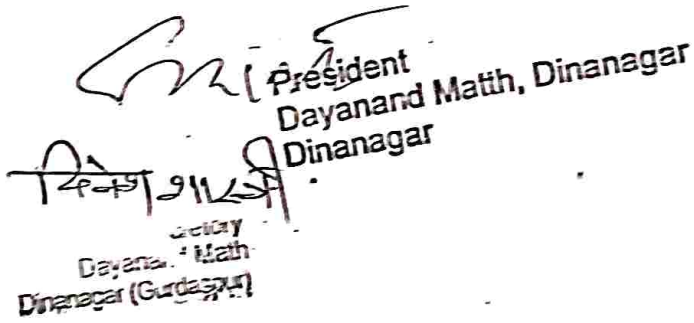 President
Dayanand Matth, Dinanagar
Dinanagar
दिनेश शास्त्री
Math
Dinanagar (Gurdaspur)